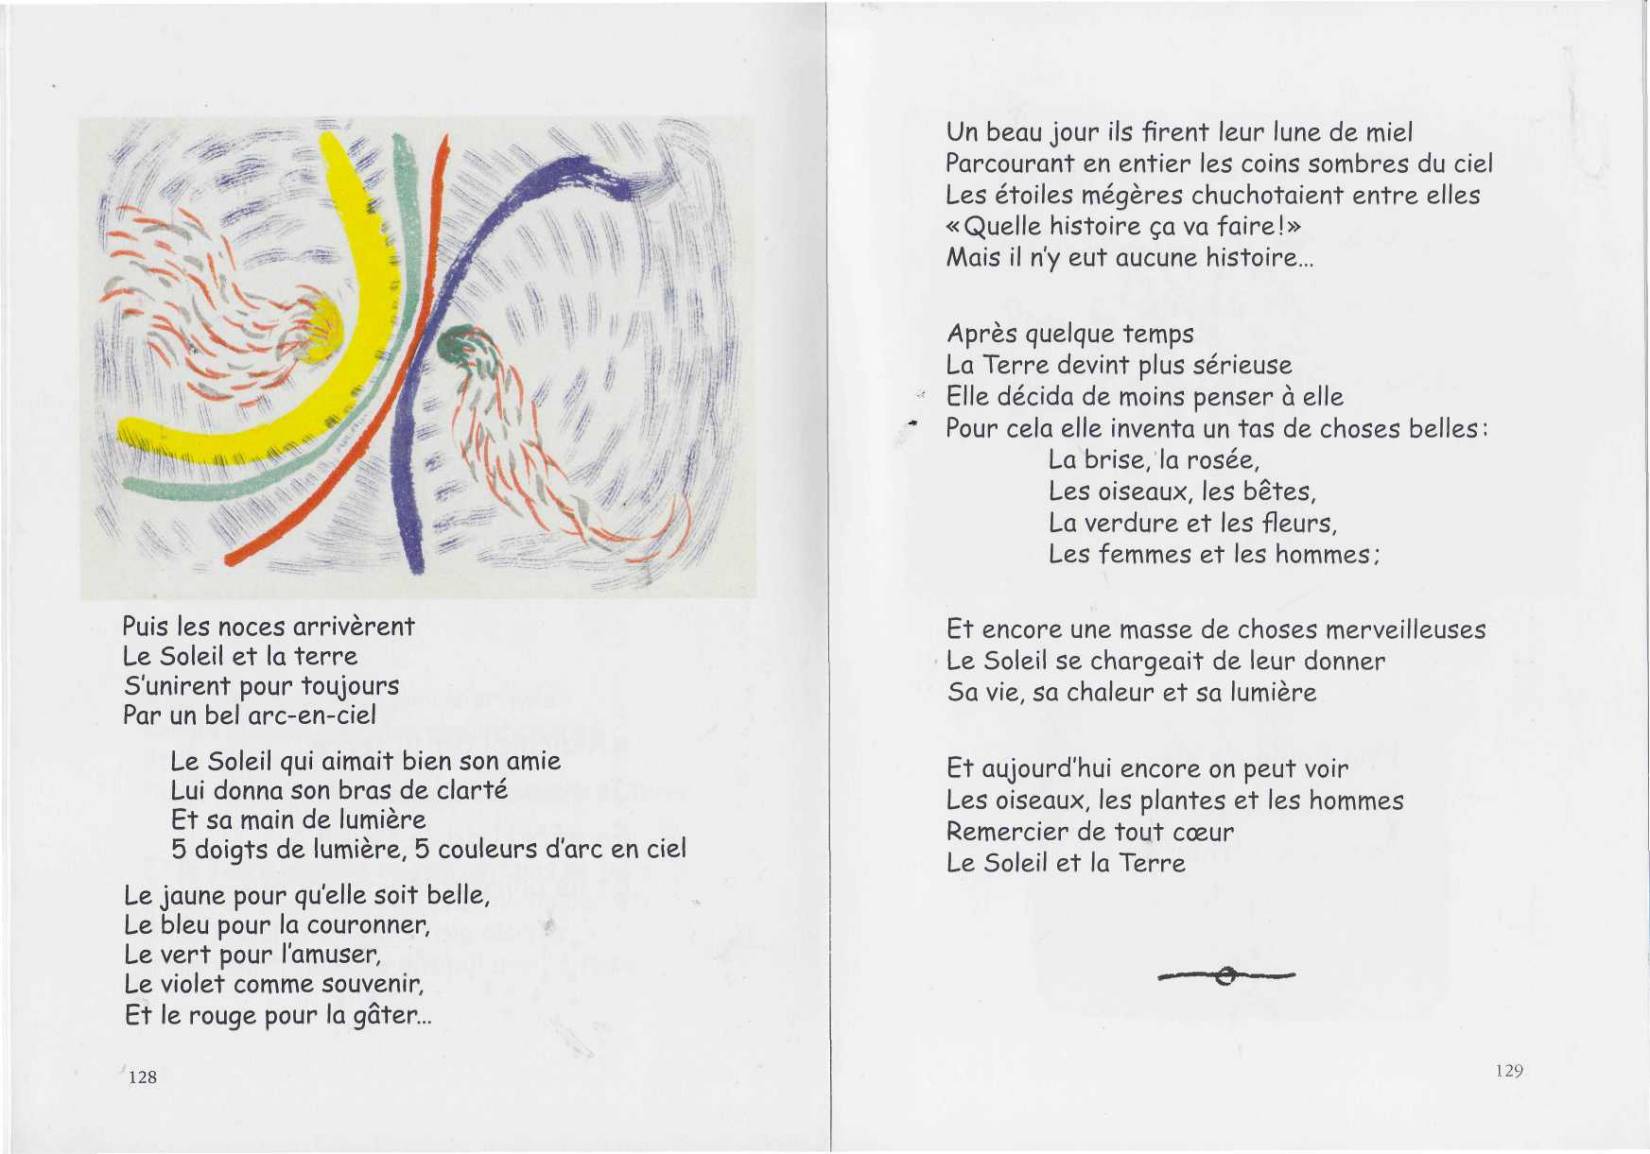 Puis les noces arrivèrent
Le Soleil et la terre
S'unirent pour toujours
Par un bel arc-en-ciel
Le Soleil qui aimait bien son amie
Lui donna son bras de clarté
Et sa main de lumière
5 doigts de lumière, 5 couleurs d'arc en ciel
Le jaune pour qu'elle soit belle,
Le bleu pour la couronner,
Le vert pour l'amuser,
Le violet comme souvenir,
Et le rouge pour la gâter...
128
Un beau jour ils firent leur lune de miel
Parcourant en entier les coins sombres du ciel
Les étoiles mégères chuchotaient entre elles
«Quelle histoire ça va faire!»
Mais il n'y eut aucune histoire...
Après quelque temps
La Terre devint plus sérieuse
Elle décida de moins penser à elle
Pour cela elle inventa un tas de choses belles:
La brise, la rosée,
Les oiseaux, les bêtes,
La verdure et les fleurs,
Les femmes et les hommes;
Et encore une masse de choses merveilleuses
Le Soleil se chargeait de leur donner
Sa vie, sa chaleur et sa lumière
Et aujourd'hui encore on peut voir
Les oiseaux, les plantes et les hommes
Remercier de tout cœur
Le Soleil et la Terre
129